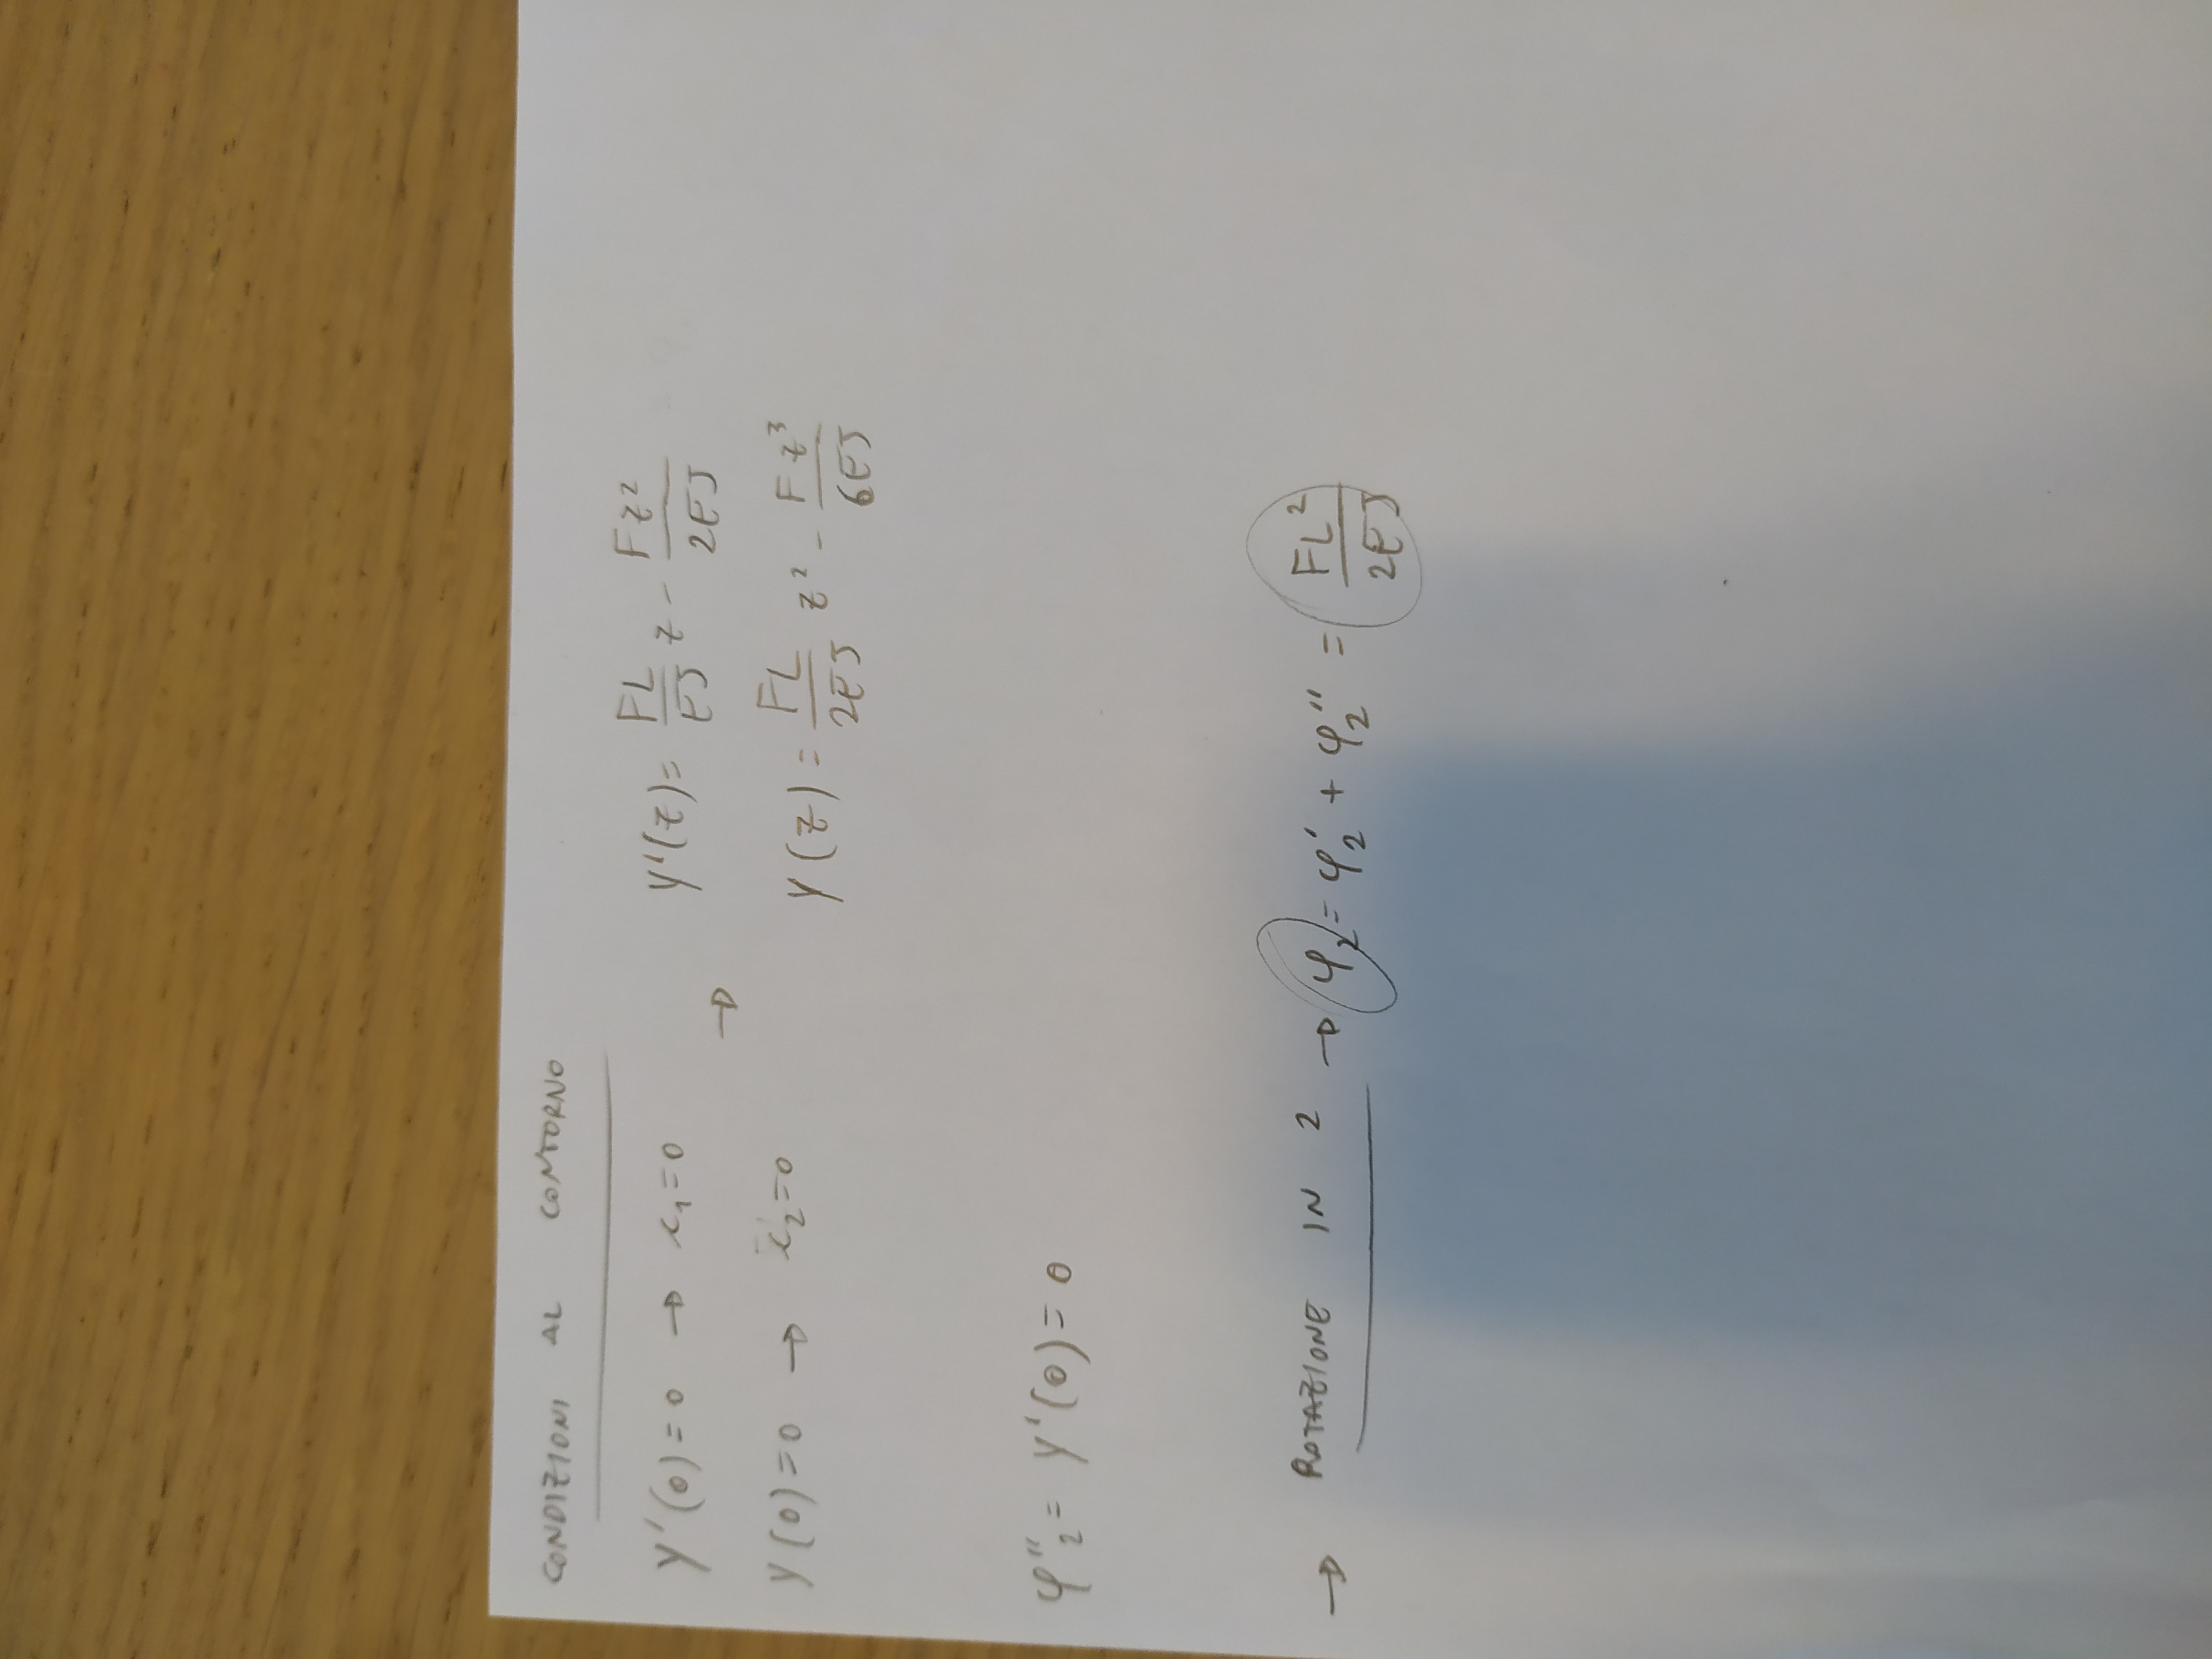 CONDIZIONI AL CONTORNO
y'(0)=0 → c₁=0
y(0)=0 → c₂=0
→ y'(z)= FL/EJ z - Fz²/2EJ
y(z)= FL/2EJ z² - Fz³/6EJ
φ''₂= y'(0)=0
→ ROTAZIONE IN 2 → φ₂= φ₂' + φ₂'' = FL²/2EJ